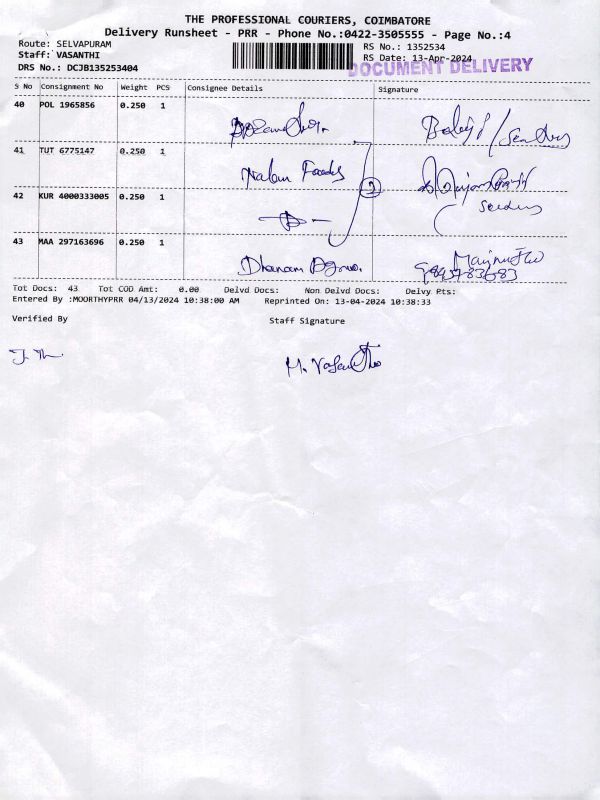 THE PROFESSIONAL COURIERS, COIMBATORE
Delivery Runsheet - PRR - Phone No.:0422-3505555 - Page No.:4
Route: SELVAPURAM
RS No.: 1352534
Staff: VASANTHI
RS Date: 13-Apr-2024
DRS No.: DCJB135253404
DOCUMENT DELIVERY
S No Consignment No Weight PCS Consignee Details Signature
40 POL 1965856 0.250 1
41 TUT 6775147 0.250 1 Nalan Foods
42 KUR 4000333005 0.250 1
43 MAA 297163696 0.250 1 Dhanam
Tot Docs: 43 Tot COD Amt: 0.00 Delvd Docs: Non Delvd Docs: Delvy Pts:
Entered By :MOORTHYPRR 04/13/2024 10:38:00 AM Reprinted On: 13-04-2024 10:38:33
Verified By Staff Signature